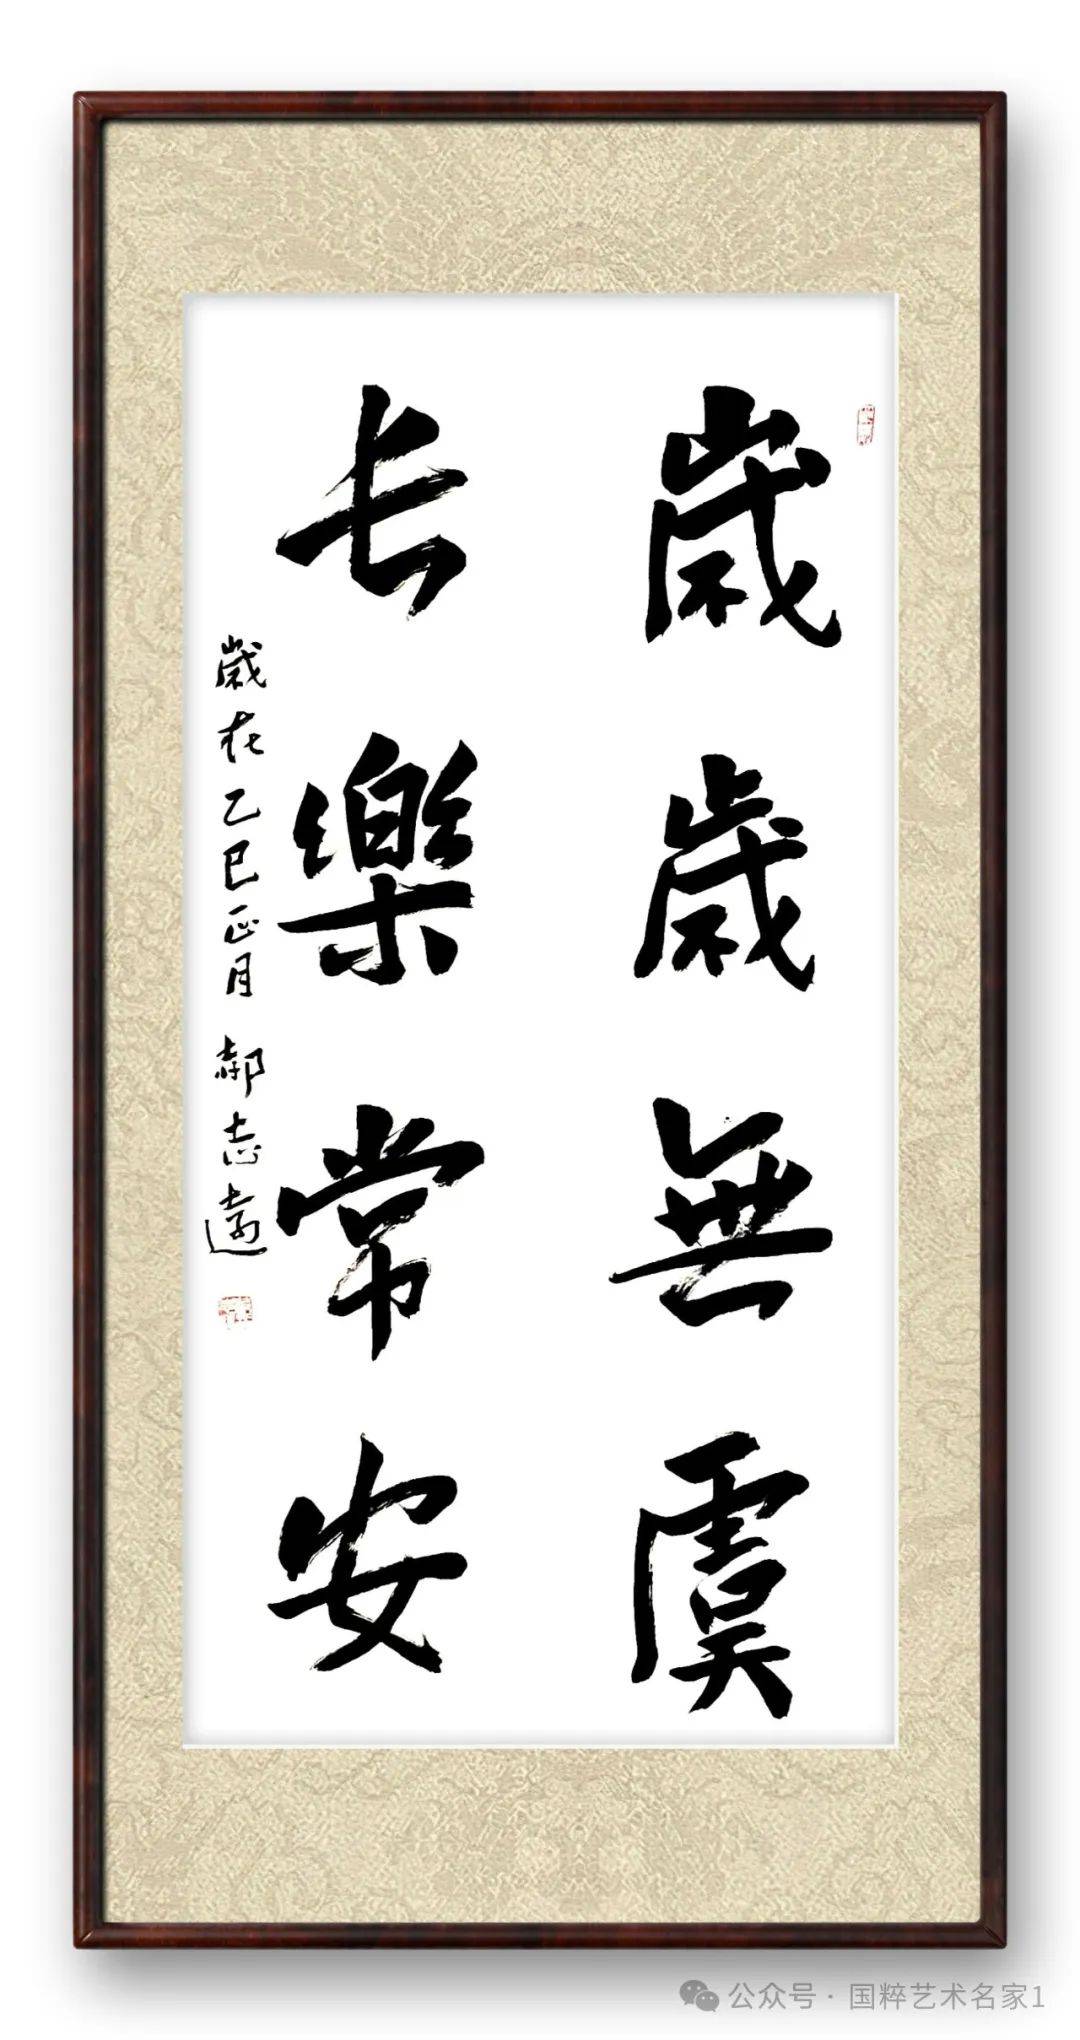 歲歲無虞
长樂常安
歲在乙巳正月 郝志遠
公众号 · 国粹艺术名家1